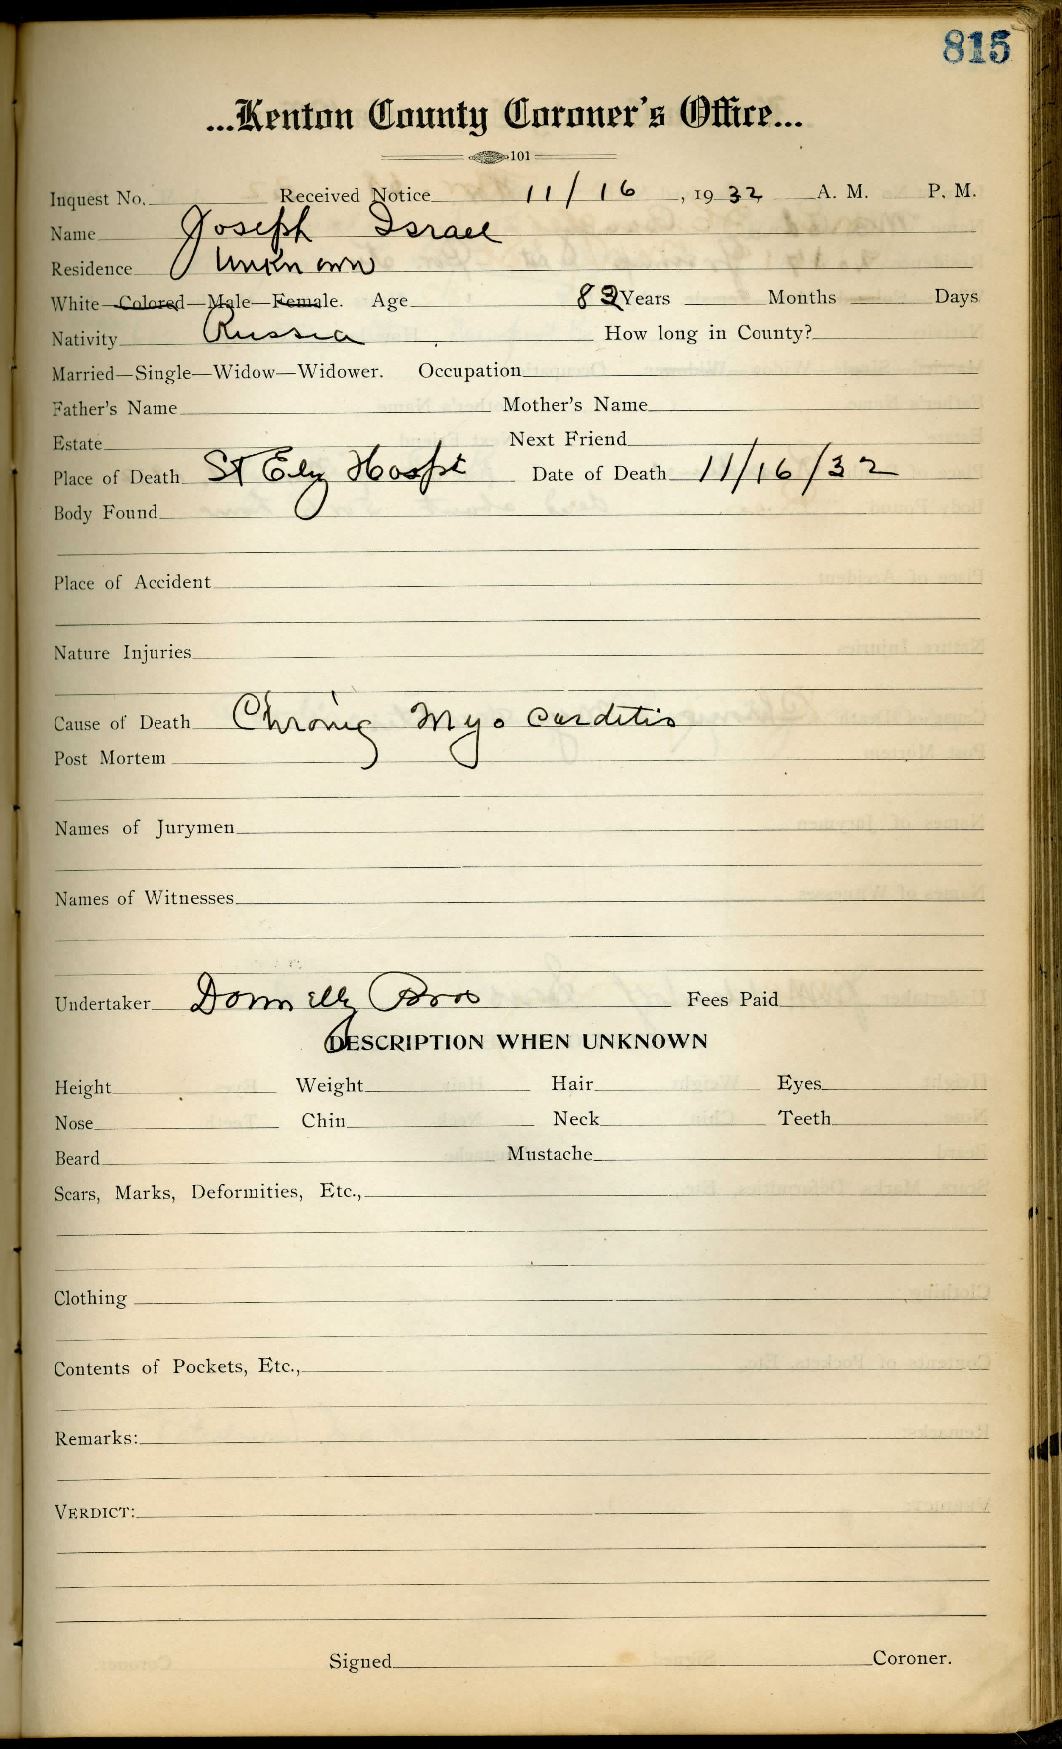 815
...Kenton County Coroner's Office...
101
Inquest No. Received Notice 11/16, 1932 A. M. P. M.
Name Joseph Israel
Residence Unknown
White—Colored—Male—Female. Age 82 Years Months Days
Nativity Russia How long in County?
Married—Single—Widow—Widower. Occupation
Father's Name Mother's Name
Estate Next Friend
Place of Death St Elz Hospt Date of Death 11/16/32
Body Found
Place of Accident
Nature Injuries
Cause of Death Chronic Myo carditis
Post Mortem
Names of Jurymen
Names of Witnesses
Undertaker Donnelly Bros Fees Paid
DESCRIPTION WHEN UNKNOWN
Height Weight Hair Eyes
Nose Chin Neck Teeth
Beard Mustache
Scars, Marks, Deformities, Etc.,
Clothing
Contents of Pockets, Etc.,
Remarks:
VERDICT:
Signed Coroner.